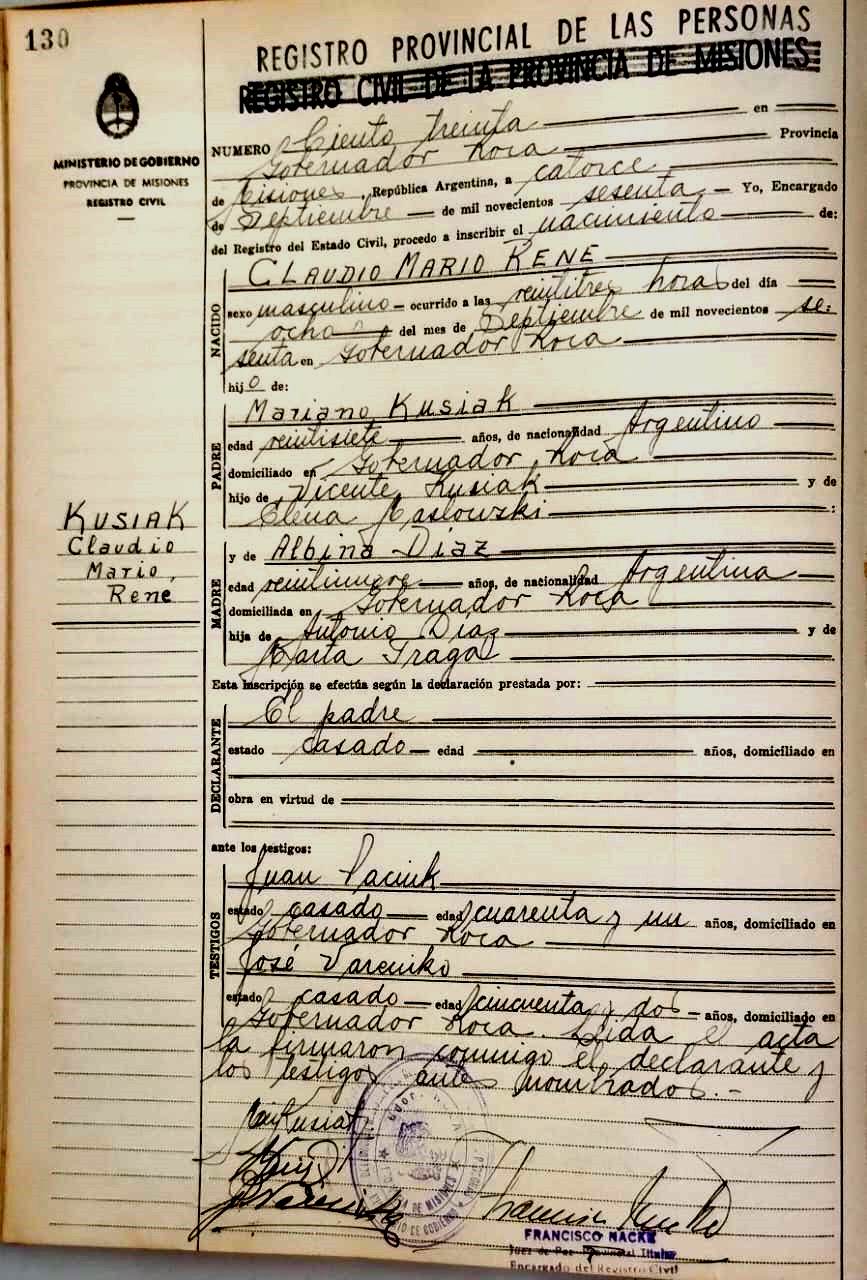 130
REGISTRO PROVINCIAL DE LAS PERSONAS
REGISTRO CIVIL DE LA PROVINCIA DE MISIONES
MINISTERIO DE GOBIERNO
PROVINCIA DE MISIONES
REGISTRO CIVIL
NUMERO Ciento treinta en
Gobernador Roca Provincia
de Misiones, República Argentina, a catorce
de Septiembre de mil novecientos sesenta Yo, Encargado
del Registro del Estado Civil, procedo a inscribir el nacimiento de:
NACIDO
CLAUDIO MARIO RENE
sexo masculino ocurrido a las veintitres horas del día
ocho del mes de Septiembre de mil novecientos se-
senta en Gobernador Roca
hijo de:
PADRE
Mariano Kusiak
edad veintisiete años, de nacionalidad Argentino
domiciliado en Gobernador Roca
hijo de Vicente Kusiak y de
Elena Maslowski :
KUSIAK
Claudio
Mario,
Rene
MADRE
y de Albina Diaz
edad veintinueve años, de nacionalidad Argentina
domiciliada en Gobernador Roca
hija de Antonio Díaz y de
Marta Fraga
Esta inscripción se efectúa según la declaración prestada por:
DECLARANTE
El padre
estado casado edad años, domiciliado en
obra en virtud de
ante los testigos:
TESTIGOS
Juan
estado casado edad cuarenta y un años, domiciliado en
Gobernador Roca
José Vareniko
estado casado edad cincuenta y dos años, domiciliado en
Gobernador Roca. Leida el acta
la firmaron conmigo el declarante y
los testigos antes nombrados.-
Kusiak
FRANCISCO NACKE
Juez de Paz Provincial Titular
Encargado del Registro Civil